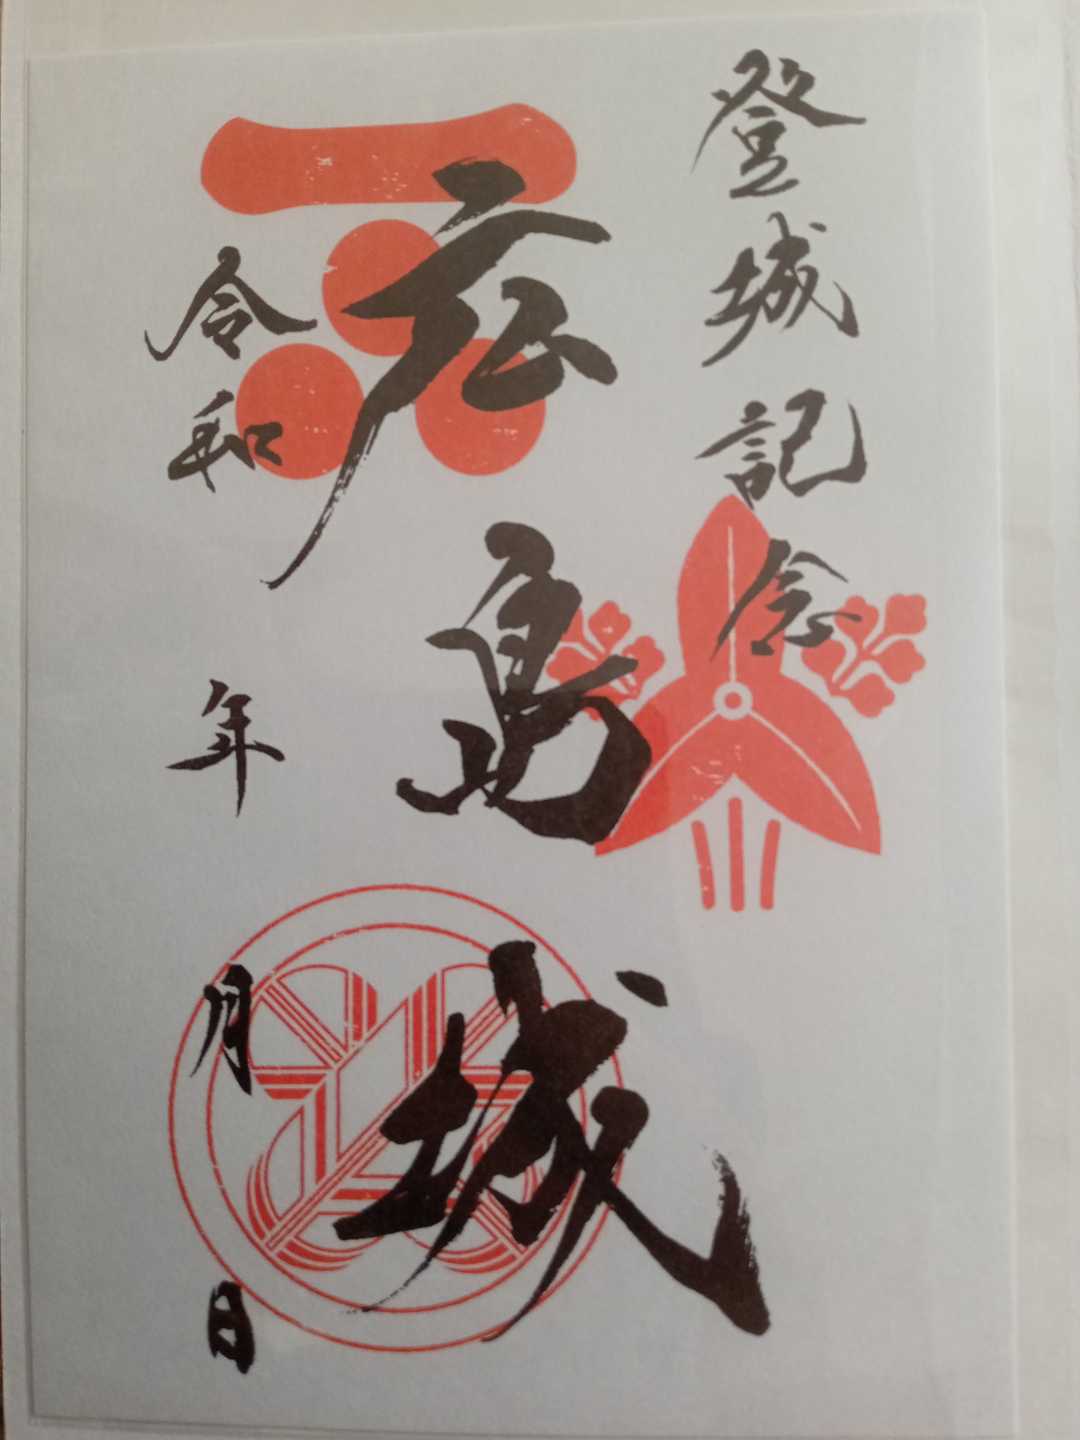 登城記念
広島城
令和　年　月　日